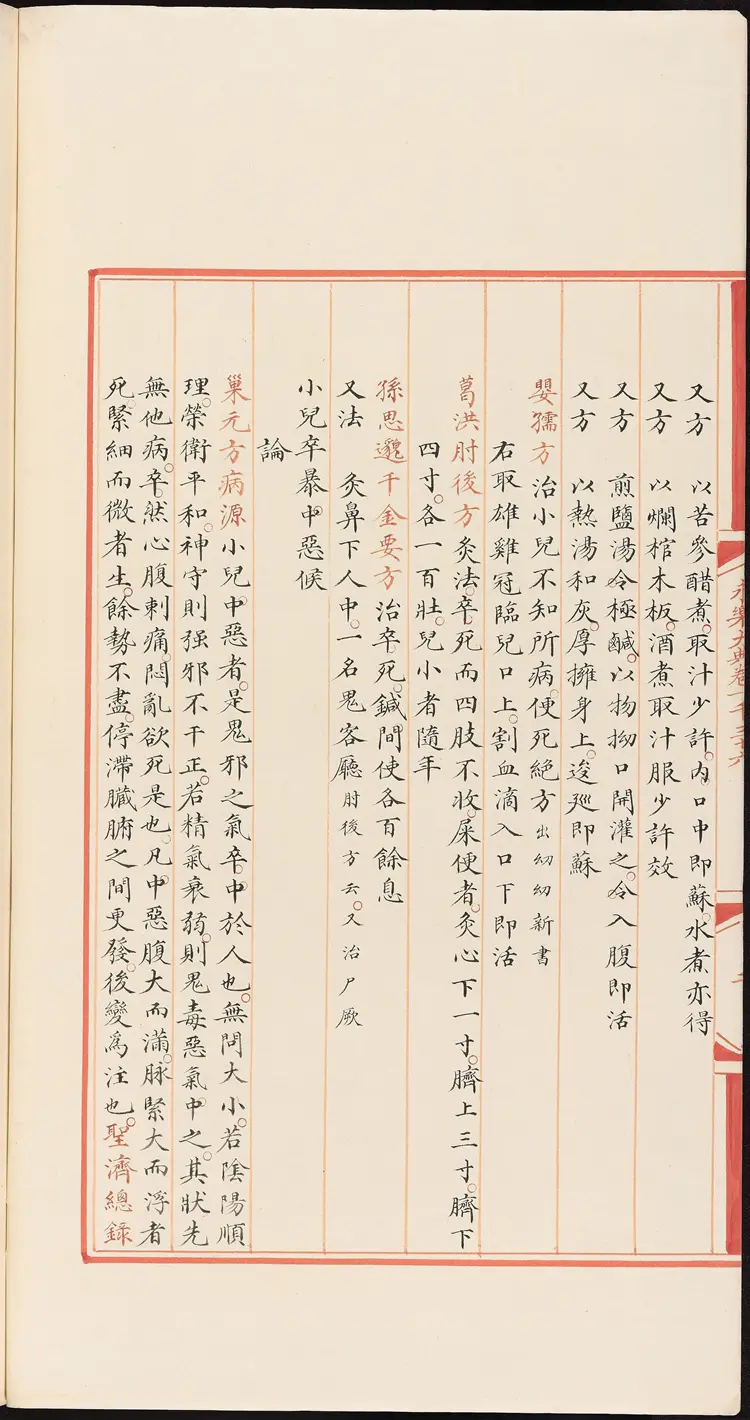 永樂大典卷一千三十六
又方　以苦參醋煮。取汁少許。內口中即蘇。水煮亦得
又方　以爛棺木板。酒煮取汁服少許效
又方　煎鹽湯令極鹹。以物拗口開灌之。令入腹即活
又方　以熱湯和灰。厚擁身上。逡巡即蘇
嬰孺方　治小兒不知所病。便死絕方出幼幼新書
右取雄雞冠臨兒口上。割血滴入口下即活
葛洪肘後方灸法。卒死而四肢不收。屎便者。灸心下一寸。臍上三寸。臍下
四寸。各一百壯。兒小者隨年
孫思邈千金要方治卒死。鍼間使各百餘息
又法　灸鼻下人中。一名鬼客廳肘後方云。又治尸厥
小兒卒暴中惡候
論
巢元方病源小兒中惡者。是鬼邪之氣卒中於人也。無問大小。若陰陽順
理。榮衛平和。神守則强邪不干正。若精氣衰弱。則鬼毒惡氣中之。其狀先
無他病。卒然心腹刺痛。悶亂欲死是也。凡中惡腹大而滿。脉緊大而浮者
死。緊細而微者生。餘勢不盡。停滯臟腑之間更發。後變爲注也。聖濟總錄